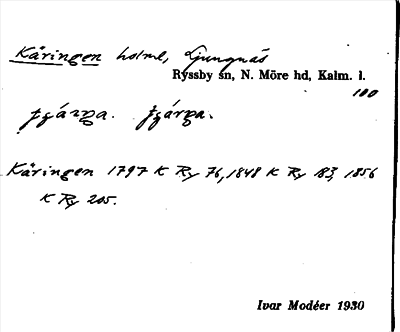 Käringen holme, Ljungnäs
Ryssby sn, N. Möre hd, Kalm. l.
100
Käringen 1797 K Ry 76, 1848 K Ry 183, 1856
K Ry 205.
Ivar Modéer 1930